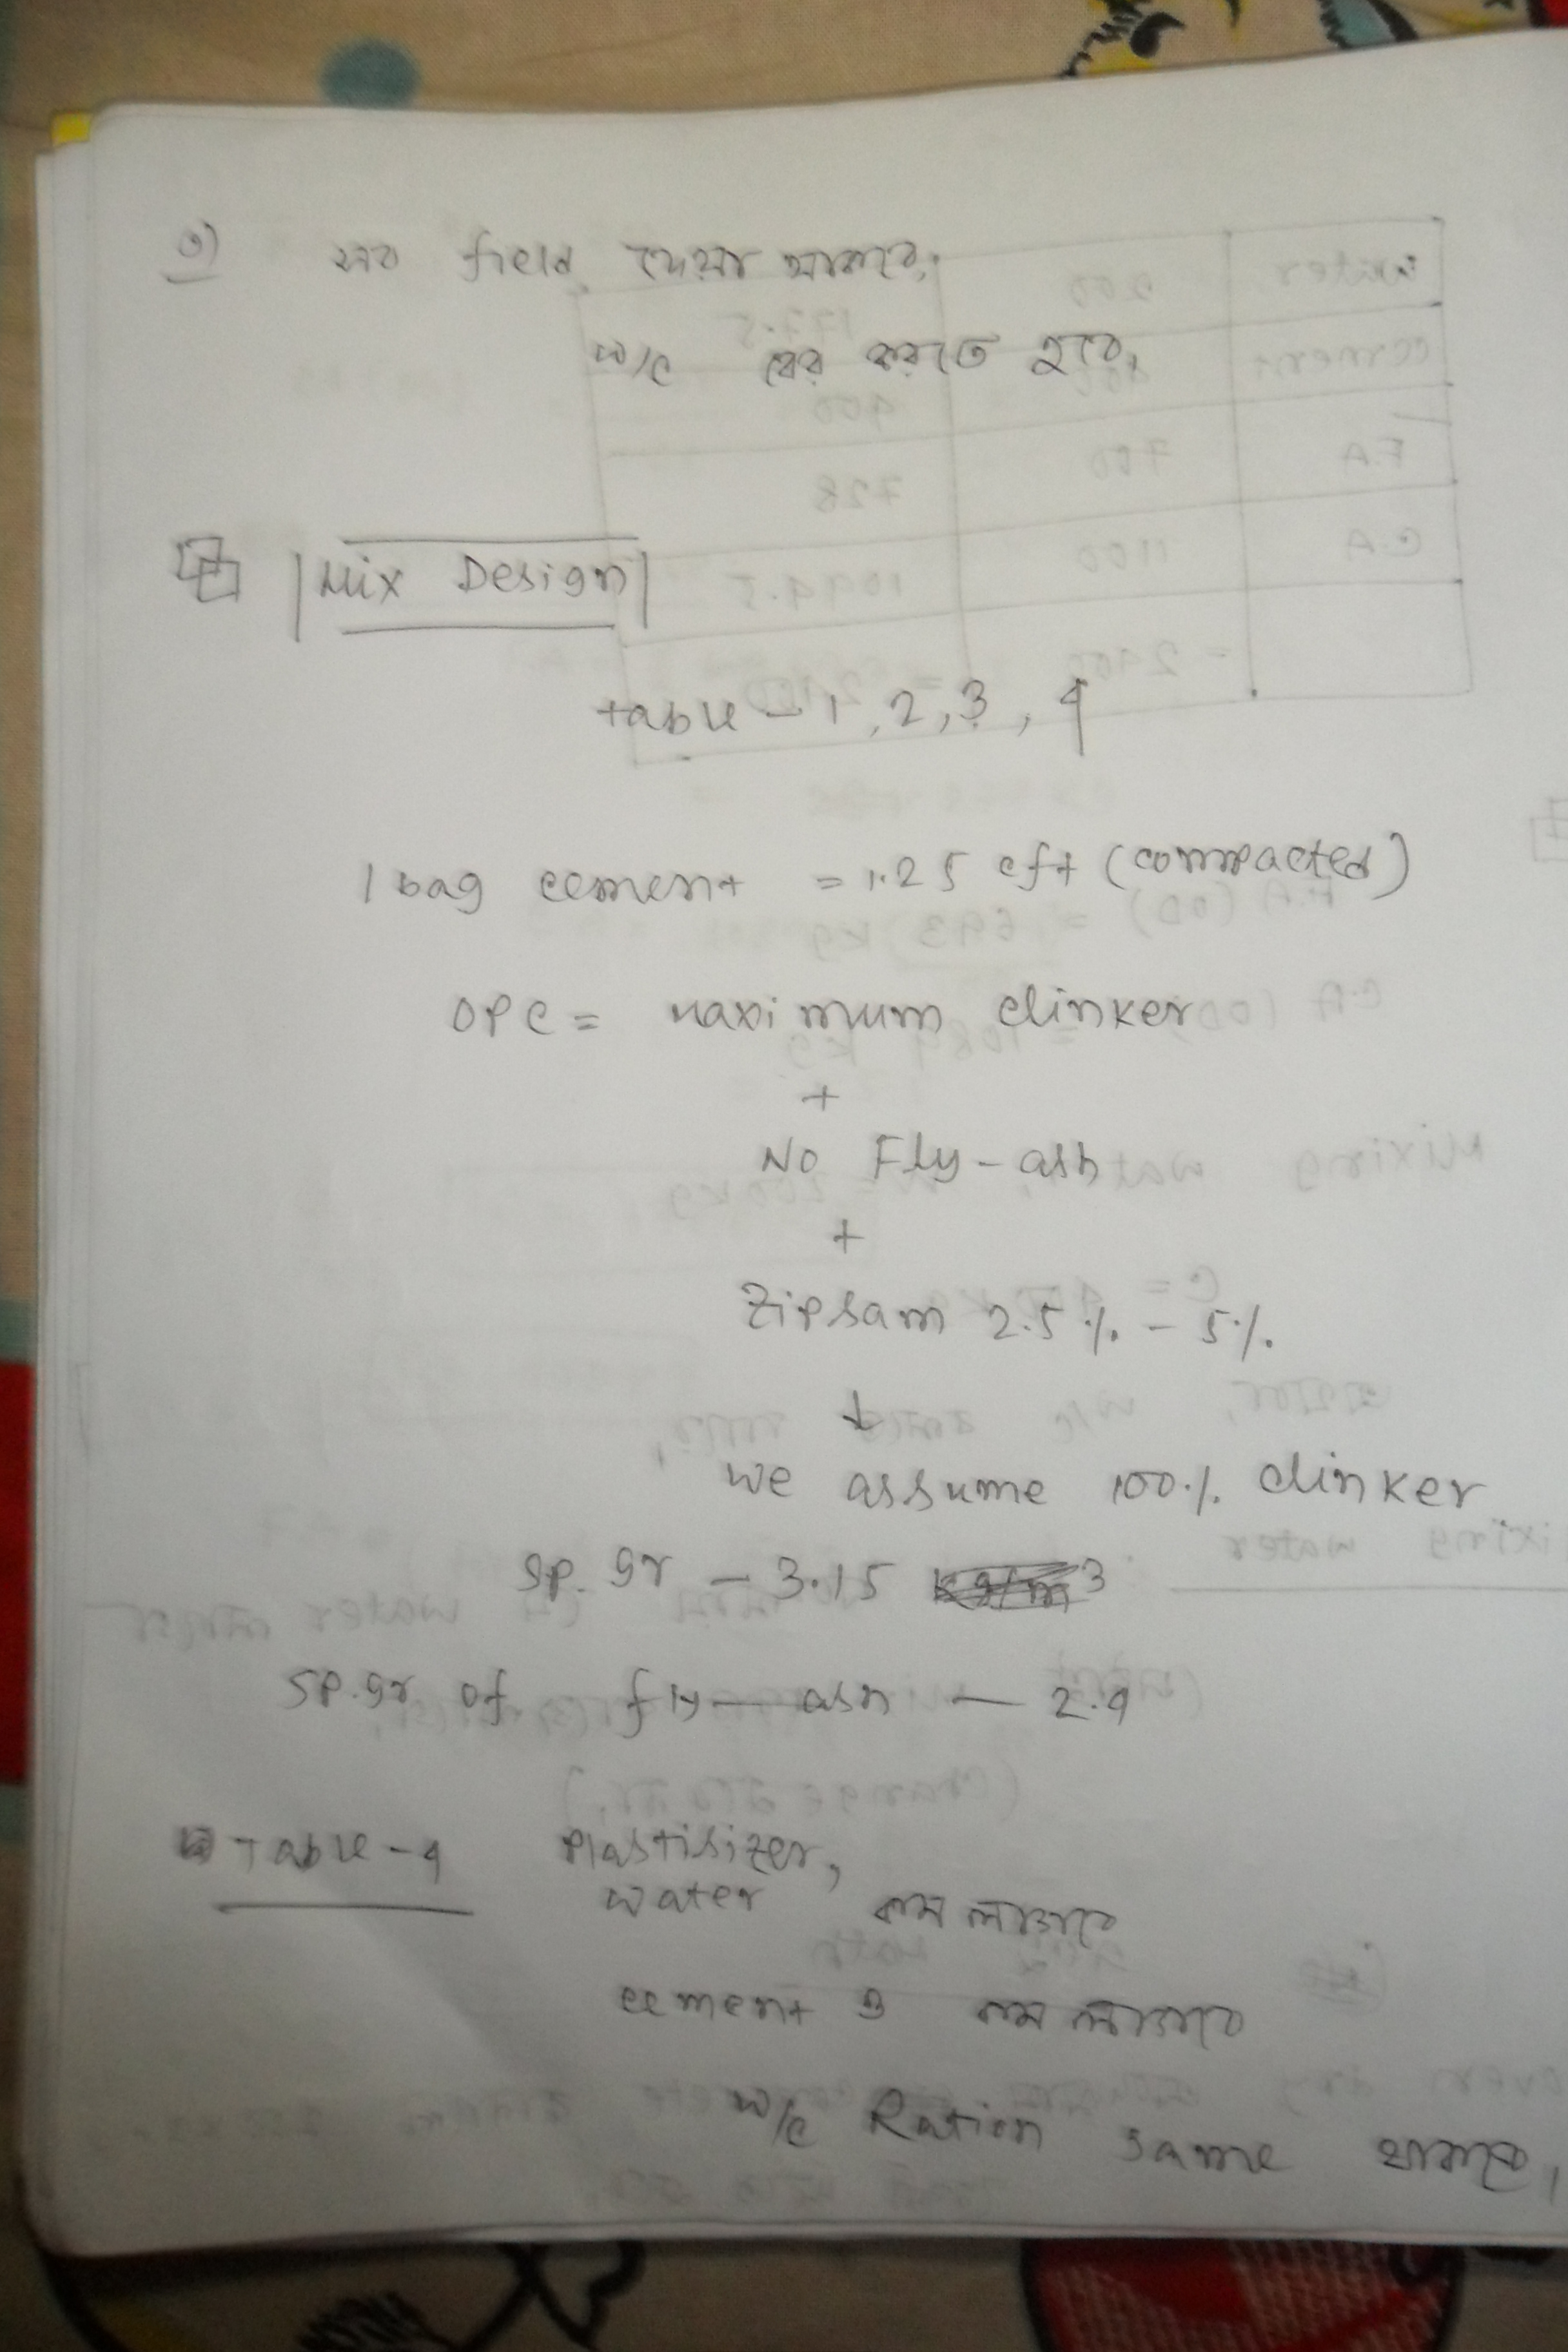 ৩) সব field দেয়া থাকবে,
w/c বের করতে হবে,
Mix Design
table - 1, 2, 3, 4
1 bag cement = 1.25 cft (compacted)
OPC = maximum clinker
+
No Fly-ash
+
Zipsam 2.5% - 5%
↓
we assume 100% clinker
sp. gr - 3.15
sp. gr of fly-ash - 2.4
Table-4 Plastisizer,
water কম লাগবে
cement ও কম লাগবে
w/c Ration same থাকবে,